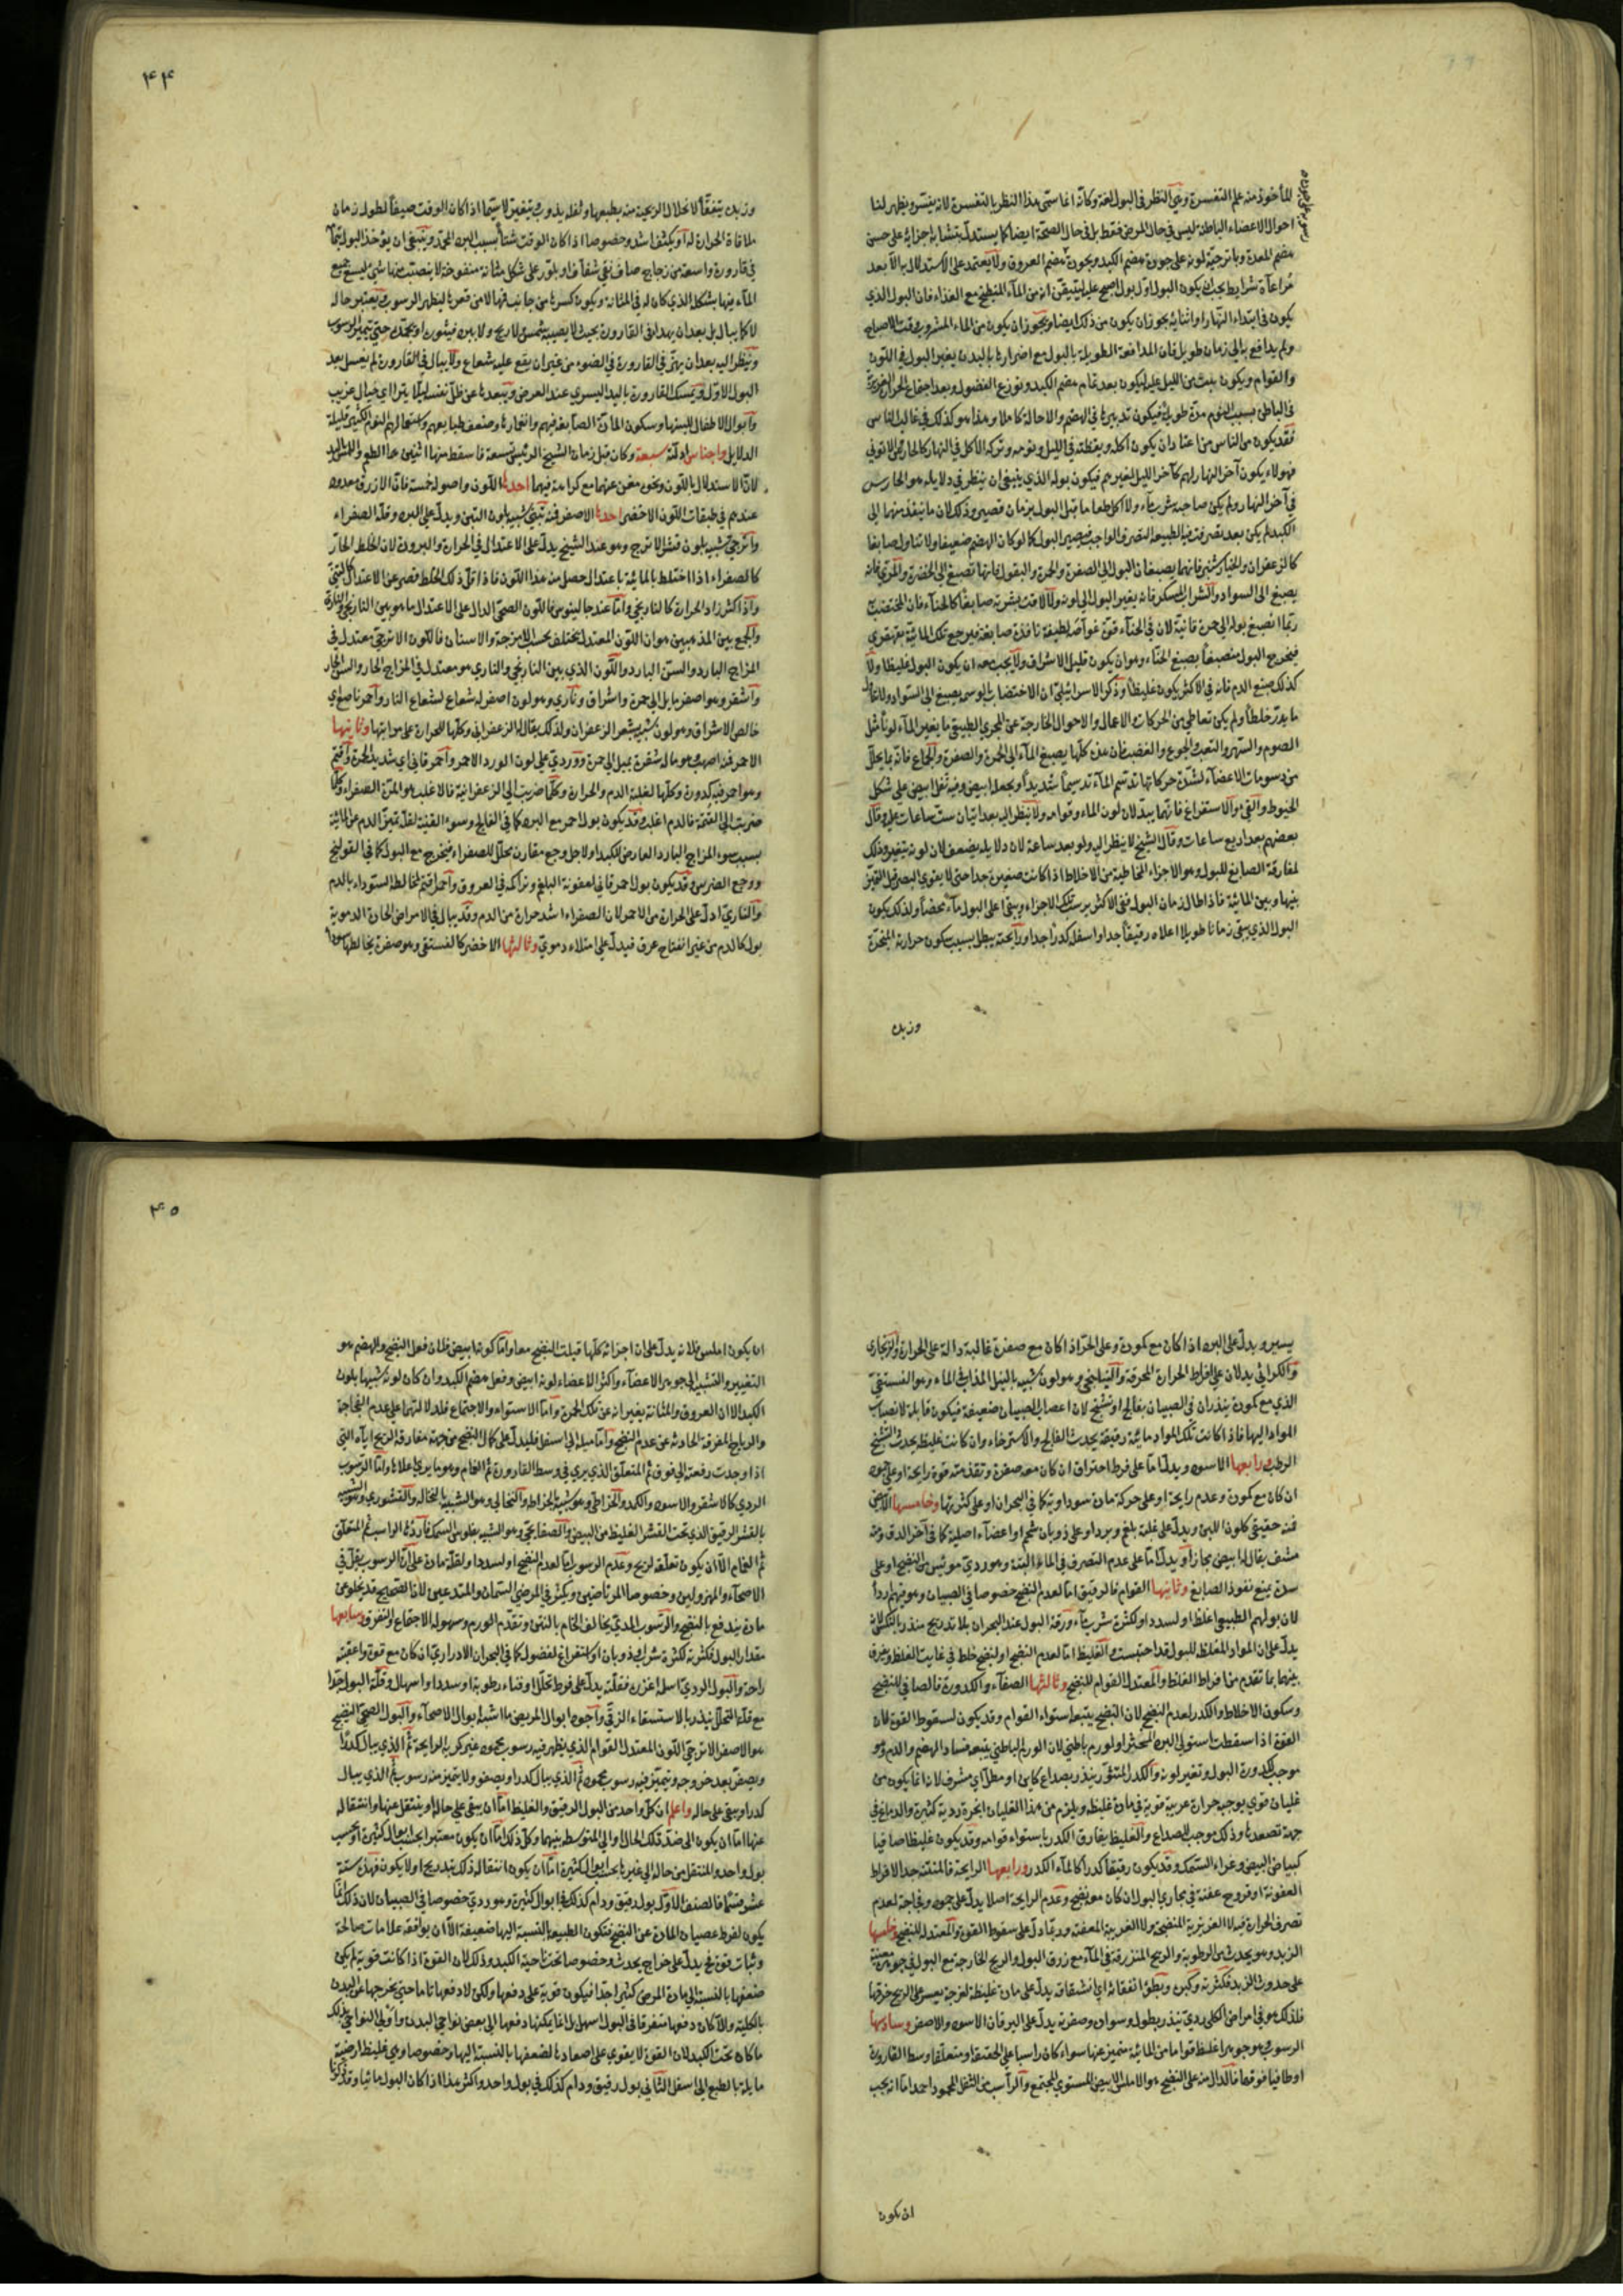 للمأخوذ منه علم التفسرة وهي النظر في البول لغة وكأنه انما سمى هذا النظر بالتفسرة لانه يفسر ويظهر لنا
احوال الاعضاء الباطنة ليس في حال المرض فقط بل في حال الصحة ايضا كما يستدل بتشابه اجزائه على حسن
هضم المعدة وباترجية لونه على جودة هضم الكبد وبجودة هضم العروق ولا يعتمد على الاستدلال به الا بعد
مراعاة شرايط يجب ان يكون البول اول بول اصبح عليه ليتيقن انه من الماء المنطبخ مع الغذاء فان البول الذي
يكون في ابتداء النهار او اثنائه يجوز ان يكون من ذلك ايضا ويجوز ان يكون من الماء المشروب وقت الاصباح
ولم يدافع به الى زمان طويل فان المدافعة الطويلة بالبول مع اضرارها بالبدن يغير البول في اللون
والقوام ويكون بيت من الليل عليه ليكون بعد تمام هضم الكبد وتوزع الفضول وبعد اجتماع الحرار الغريزية
في الباطن بسبب النوم مدة طويلة فيكون تدبيرها في الهضم والاحالة كاملا وهذا هو كذلك في غالب الناس
فقد يكون من الناس من اعتاد ان يكون اكله ويقظته في الليل ونومه وتركه الاكل في النهار كالحارس والاتوني
فهولاء يكون آخر النهار لهم كآخر الليل لغيرهم فيكون بوله الذي ينبغي ان ينظر في دلايله هو الحارس
في آخر النهار ولم يكن صاحبه شرب ماء ولا اكل طعاما قبل البول بزمان قصير وذلك لان ما ينفذ منهما الى
الكبد لم يكن بعد تصرفت فيه الطبيعة التصرف الواجب فيصير البول كما لو كان الهضم ضعيفا ولا تناول صابغا
كالزعفران والخيار شنبر فانهما يصبغان البول الى الصفرة والحمرة والبقول فانها تصبغ الى الخضرة والمري فانه
يصبغ الى السواد والشراب المسكر فانه يغير البول الى لونه ولا لاقت بشرته صابغا كالحناء فان المختضب به
ربما انصبغ بوله الى حمرة قانية لان في الحناء قوة غواصة لطيفة نافذة صابغة فيرجع تلك المائية بقهقري
فيخرج البول منصبغا بصبغ الحناء وهو ان يكون قليل الاشراق ولا يجب معه ان يكون البول غليظا ولا
كذلك صبغ الدم فانه في الاكثر يكون غليظا وذكر الاسرائيلي ان الاختضاب بالوسمه يصبغ الى السواد ولا تناول
ما يدر خلطا ولم يكن تعاطى من الحركات والاعمال والاحوال الخارجة عن المجرى الطبيعي ما يغير الماء لونا مثل
الصوم والسهر والتعب والجوع والغضب فان هذه كلها يصبغ الماء الى الحمرة والصفرة والجماع فانه بما يحلل
من دسومات الاعضاء لشدة حركاتها تدسم الماء تدسيما شديدا ويجعله ابيض وفيه ثفل ابيض على شكل
الخيوط والقي والاستفراغ فانهما يبدلان لون الماء وقوامه ولا ينظر اليه بعد اتيان ست ساعات عليه وقال
بعضهم بعد اربع ساعات وقال الشيخ لا ينظر اليه ولو بعد ساعة لان دلايله يضعف لان لونه يتغير وذلك
لمفارقة الصابغ للبول وهو الاجزاء المخاطية من الاخلاط اذا كانت صغيرة جدا حتى لا يقوى البصر على التمييز
بينها وبين المائية فاذا طال زمان البول ففي الاكثر يرسب تلك الاجزاء ويبقى اعلى البول ماء محضا ولذلك يكون
البول الذي يبقى زمانا طويلا اعلاه رقيقا جدا واسفله كدرا جدا ورائحته يبطل بسبب سكون حرارته المبخرة
وزبده
۴۴
وزبده يتفقأ لانحلال الريحية منه بطبعها وثفله يذوب ويتغير لا سيما اذا كان الوقت صيفا لطول زمان
ملاقاة الحرارة له او يكثف اشد وخصوصا اذا كان الوقت شتاء بسبب البرد المجمد وينبغي ان يؤخذ البول بتمامه
في قارورة واسعة من زجاج صاف نقي شفاف او بلور على شكل مثانة منفوخة لا ينصب منها شيء ليسع جميع
الماء فيها بشكله الذي كان له في المثانة ويكون كسرتها من جانب فمها لا من قعرها ليظهر الرسوب يعتبر حاله
لا كما يبال بل بعد ان يهدا في القارورة بحيث لا يصيبه شمس ولا ريح ولا برد فيثوره او يجمده حتى يتميز الرسوب
وينظر اليه بعد ان يهز في القارورة في الضوء من غير ان يقع عليه شعاع ولا يبال في القارورة لم يغسل بعد
البول الاول ويمسك القارورة باليد اليسرى عند العرض ويبعدها عن ظل نفسه ليلا يتراءى خيال غريب
وابوال الاطفال للبنها وسكون المادة الصابغة فيهم وانغمارها وضعف طبايعهم وكثرة استعمالهم النوم الكثير قليلة
الدلايل واجناس ادلته سبعة وكان قبل زمان الشيخ الرئيس تسعة فاسقط منها اثنين هما الطعم واللمس
لان الاستدلال باللون ونحوه مغن عنهما مع كراهة فيهما احدها اللون واصوله خمسة فان الازرق معدود
عندهم في طبقات اللون الاخضر احدها الاصفر فمنه تبني شبيه بلون التبن ويدل على البرد وقلة الصفراء
واترجي شبيه بلون قشر الاترج وهو عند الشيخ يدل على الاعتدال في الحرارة والبرودة لان الخلط الحار
كالصفراء اذا اختلط بالمائية باعتدال حصل من هذا اللون فاذا قل ذلك الخلط قصر عن الاعتدال كالتبني
واذا كثر زاد الحرارة كالنارنجي واما عند جالينوس فاللون الصحي الدال على الاعتدال ما هو بين النارنجي والنارية
والجمع بين المذهبين هو ان اللون المعتدل يختلف بحسب الامزجة والاسنان فاللون الاترجي معتدل في
المزاج البارد والسن البارد واللون الذي بين النارنجي والناري هو معتدل في المزاج الحار والسن الحار
واشقر وهو اصفر مايل الى حمرة واشراق وناري وهو لون اصفر له شعاع كشعاع النار واحمر ناصع اي
خالص الاشراق وهو لون شبيه بشعر الزعفران ولذلك يقال له الزعفراني وكلها للحرارة على مراتبها وثانيها
الاحمر فمنه اصهب وهو ماله شقرة يميل الى حمرة ووردي على لون الورد الاحمر واحمر قاني اي شديد الحمرة واقتم
وهو احمر فيه كدورة وكلها لغلبة الدم والحرارة وكلما ضربت الى الزعفرانية فالاغلب هو المرة الصفراء وكلما
ضربت الى القتمة فالدم اغلب وقد يكون بول احمر مع البرد كما في الفالج وسوء القنية لقلة تميز الدم عن المائية
بسبب سوء المزاج البارد العارض للكبد او لاجل وجع مقارن محلل للصفراء فيخرج مع البول كما في القولنج
ووجع الضرس وقد يكون بول احمر قاني لعفونة البلغم وتراكمه في العروق واحمر اقتم لمخالطة السوداء بالدم
والناري ادل على الحرارة من الاحمر لان الصفراء اشد حرارة من الدم وقد يبال في الامراض الحادة الدموية
بول كالدم من غير انفتاح عرق فيدل على امتلاء دموي وثالثها الاخضر كالفستقي وهو صفرة يخالطها سواد
يسير ويدل على البرد اذا كان مع كمودة وعلى الحر اذا كان مع صفرة غالبة دالة على الحرارة والزنجاري
والكراثي يدلان على افراط الحرارة المحرقة والنيلنجي وهو لون شبيه بالنيل المذاب في الماء وهو الفستقي
الذي مع كمودة ينذران في الصبيان بفالج او تشنج لان اعصاب الصبيان ضعيفة فيكون قابلة لانصباب
المواد اليها فاذا كانت تلك المواد مائية رقيقة يحدث الفالج والاسترخاء وان كانت غليظة يحدث التشنج
الرطب ورابعها الاسود ويدل اما على فرط احتراق ان كان معه صفرة وتقدمته قوة رايحة او على جمود
ان كان مع كمودة وعدم رايحة او على حركة مادة سوداوية كما في البحران او على كثرتها وخامسها الابيض
فمنه حقيقي كلون اللبن ويدل على غلبة بلغم وبرد او على ذوبان شحم او اعضاء اصلية كما في آخر الدق ومنه
مشف يقال له ابيض مجازا ويدل اما على عدم التصرف في الماء البتة وهو ردي مؤيس من النضج او على
سدة يمنع نفوذ الصابغ وثانيها القوام فالرقيق اما لعدم النضج خصوصا في الصبيان وهو فيهم اردأ
لان بولهم الطبيعي اغلظ او لسدد او لكثرة شرب ماء ورقة البول عند البحران بلا تدريج منذر بالنكس لانه
يدل على ان المواد المغلظة للبول قد احتبست والغليظ اما لعدم النضج او لنضج خلط في غايت الغلظ ويفرق
بينهما بما تقدم من افراط الغلظ والمعتدل القوام للنضج وثالثها الصفاء والكدورة فالصافي للنضج
وسكون الاخلاط والكدر لعدم النضج لان النضج يتبعه استواء القوام وقد يكون لسقوط القوة لان
القوة اذا سقطت استولى البرد المخثر او لورم باطني لان الورم الباطني يتبعه فساد الهضم والدم وهو
موجب لكدورة البول وتغير لونه والكدر المتثور ينذر بصداع كاين او مطل اي مشرف لانه انما يكون من
غليان قوي يوجبه حرارة غريبة قوية في مادة غليظة ويلزم من هذا الغليان ابخرة ردية كثيرة والدماغ في
جهة تصعدها وذلك موجب للصداع والغليظ يفارق الكدر باستواء قوامه وقد يكون غليظا صافيا
كبياض البيض وغراء السمك وقد يكون رقيقا كدرا كالماء الكدر ورابعها الرايحة فالمنتنة جدا لافراط
العفونة او قروح عفنة في مجاري البول ان كان مع نضج وعدم الرايحة اصلا يدل على جمود وفجاجة لعدم
تصرف الحرارة فيه لا الغريزية المنضجة ولا الغريبة المعفنة وربما دل على سقوط القوة والمعتدل للنضج وخامسها
الزبد وهو يحدث من الرطوبة والريح المنزرقة في الماء مع زرق البول والريح الخارجة مع البول في جوهره معينة
على حدوث الزبد فكثرته وكبره وبطؤ انفقائه اي انشقاقه يدل على مادة غليظة لزجة يعسر على الريح خرقها
فلذلك هو في امراض الكلى ردي ينذر بطول وسواده وصفرته يدل على اليرقان الاسود والاصفر وسادسها
الرسوب وهو جوهر اغلظ قواما من المائية متميز عنها سواء كان راسبا على الحقيقة او متعلقا وسط القارورة
او طافيا فوقها فالدال منه على النضج هو الاملس الابيض المستوي المجتمع والراسب من الثفل المحمود احمد اما انه يجب
ان يكون
۴۵
ان يكون املس فلانه يدل على ان اجزائه كلها قبلت النضج معا واما كونها ابيض فلان فعل النضج والهضم هو
التغيير والتشبيه الى جوهر الاعضاء واكثر الاعضاء لونه ابيض وفعل هضم الكبد وان كان لونه شبيها بلون
الكبد الا ان العروق والمثانة يغيرانه عن تلك الحمرة واما الاستواء والاجتماع فلدلالتهما على عدم الفجاجة
والرياح المفرقة الحادثة عن عدم النضج واما ميله الى اسفل فليدل على كمال النضج من جهة مفارقة الريح اياه التي
اذا وجدت رفعته الى فوق ثم المتعلق الذي يرى في وسط القارورة ثم الغمام وهو ما يرى اعلاها واما الرسوب
الردي كالاشقر والاسود والكمد والخراطي وهو شبيه بالخراط والنخالي وهو الشبيه بالنخالة والقشوري وهو شبيه
بالقشر الرقيق الذي تحت القشر الغليظ من البيض والصفايحي وهو الشبيه بفلوس السمك فاردئه الراسب ثم المتعلق
ثم الغمام الا ان يكون تعلقه لريح وعدم الرسوب اما لعدم النضج او لسدد او لقلة مادة على ان الرسوب يقل في
الاصحاء والمهزولين وخصوصا المرتاضين ويكثر في المرضى السمان والمتدعين لان الصحيح قد يخلو عن
مادة يندفع بالنضج والرسوب المدي يخالف الخام بالنتن وتقدم الورم وسهولة الاجتماع والتفرق وسابعها
مقدار البول فكثرته لكثرة شرب او ذوبان او استفراغ لفضول كما في البحران الادراري ان كان مع قوة واعقبه
راحة والبول الردي اسلمه اغزره فقلته يدل على فرط تحلل او فناء رطوبة او سدد او اسهال وقلة البول جدا
مع قلة التحلل ينذر بالاستسقاء الزقي واجود ابوال المريض ما اشبه بوال الاصحاء والبول الصحي النضيج
هو الاصفر الاترجي اللون المعتدل القوام الذي يظهر فيه رسوب محمود غير كريه الرايحة ثم الذي يبال كدرا
ويصفر بعد خروجه ويتميز فيه رسوب محمود ثم الذي يبال كدرا ويصفو ولا يتميز منه رسوب ثم الذي يبال
كدرا ويبقى على حاله واعلم ان كل واحد من البول الرقيق والغليظ اما ان يبقى على حاله او ينتقل عنها وانتقاله
عنها اما ان يكون الى ضد تلك الحال او الى المتوسط بينهما وكل ذلك اما ان يكون معتبرا بحسب ابوال كثيرة او بحسب
بول واحد والمنتقل من حاله الى غيرها بحسب ابوال كثيرة اما ان يكون انتقاله ذلك بتدريج او لا يكون فهذه ستة
عشر قسما فالصنف الاول بول رقيق ودام كذلك في ابوال كثيرة وهو ردي خصوصا في الصبيان لان ذلك انما
يكون لفرط عصيان المادة عن النضج فتكون الطبيعة بالنسبة اليها ضعيفة الا ان يوافقه علامات صالحة
وثبات قوة فحينئذ يدل على خراج يحدث وخصوصا تحت ناحية الكبد وذلك لان القوة اذا كانت قوية لم يكن
ضعفها بالنسبة الى مادة المرض كثيرا جدا فيكون قوية على دفعها ولكن لا دفعا تاما حتى يخرجها عن البدن
بالكلية والا كان دفعها متفرقا في البول اسهل بل انما يمكنها دفعها الى بعض نواحي البدن واولى النواحي بذلك
ما كان تحت الكبد لان القوة لا يقوى على اصعادها لضعفها بالنسبة اليها وخصوصا وهي غليظة ارضية
مايلة بالطبع الى اسفل الثاني بول رقيق ودام كذلك في بول واحد واكثر هذا اذا كان البول مائيا وقد ذكرنا